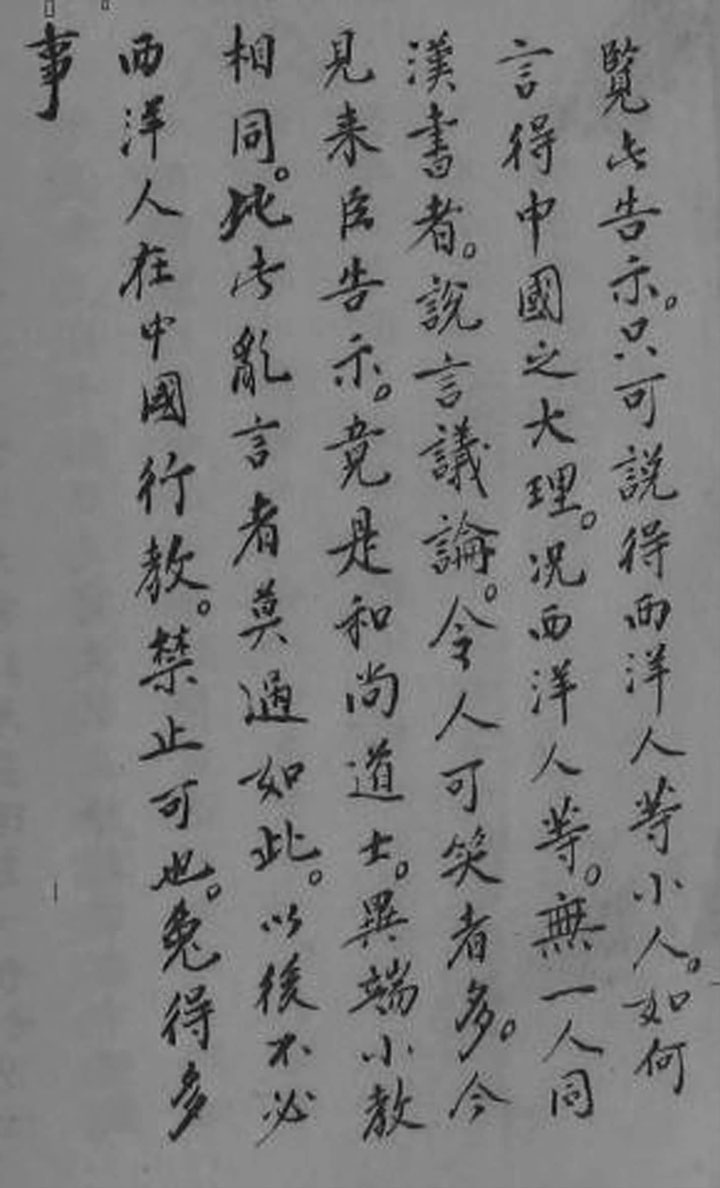 覽此告示。只可說得西洋人等小人。如何
言得中國之大理。况西洋人等。無一人同
漢書者。說言議論。令人可笑者多。今
見来臣告示。竟是和尚道士。異端小教
相同。此乱言者莫過如此。以後不必
西洋人在中國行教。禁止可也。免得多
事